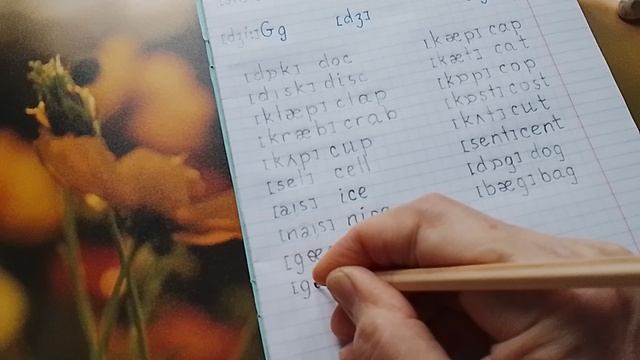 [dʒi:] Gg [dʒ]
[dɒk] doc
[dɪsk] disc
[klæp] clap
[kræb] crab
[kʌp] cup
[sel] cell
[aɪs] ice
[naɪs] nice
[gæ
[g
[kæp] cap
[kæt] cat
[kɒp] cop
[kɒst] cost
[kʌt] cut
[sent] cent
[dɒg] dog
[bæg] bag